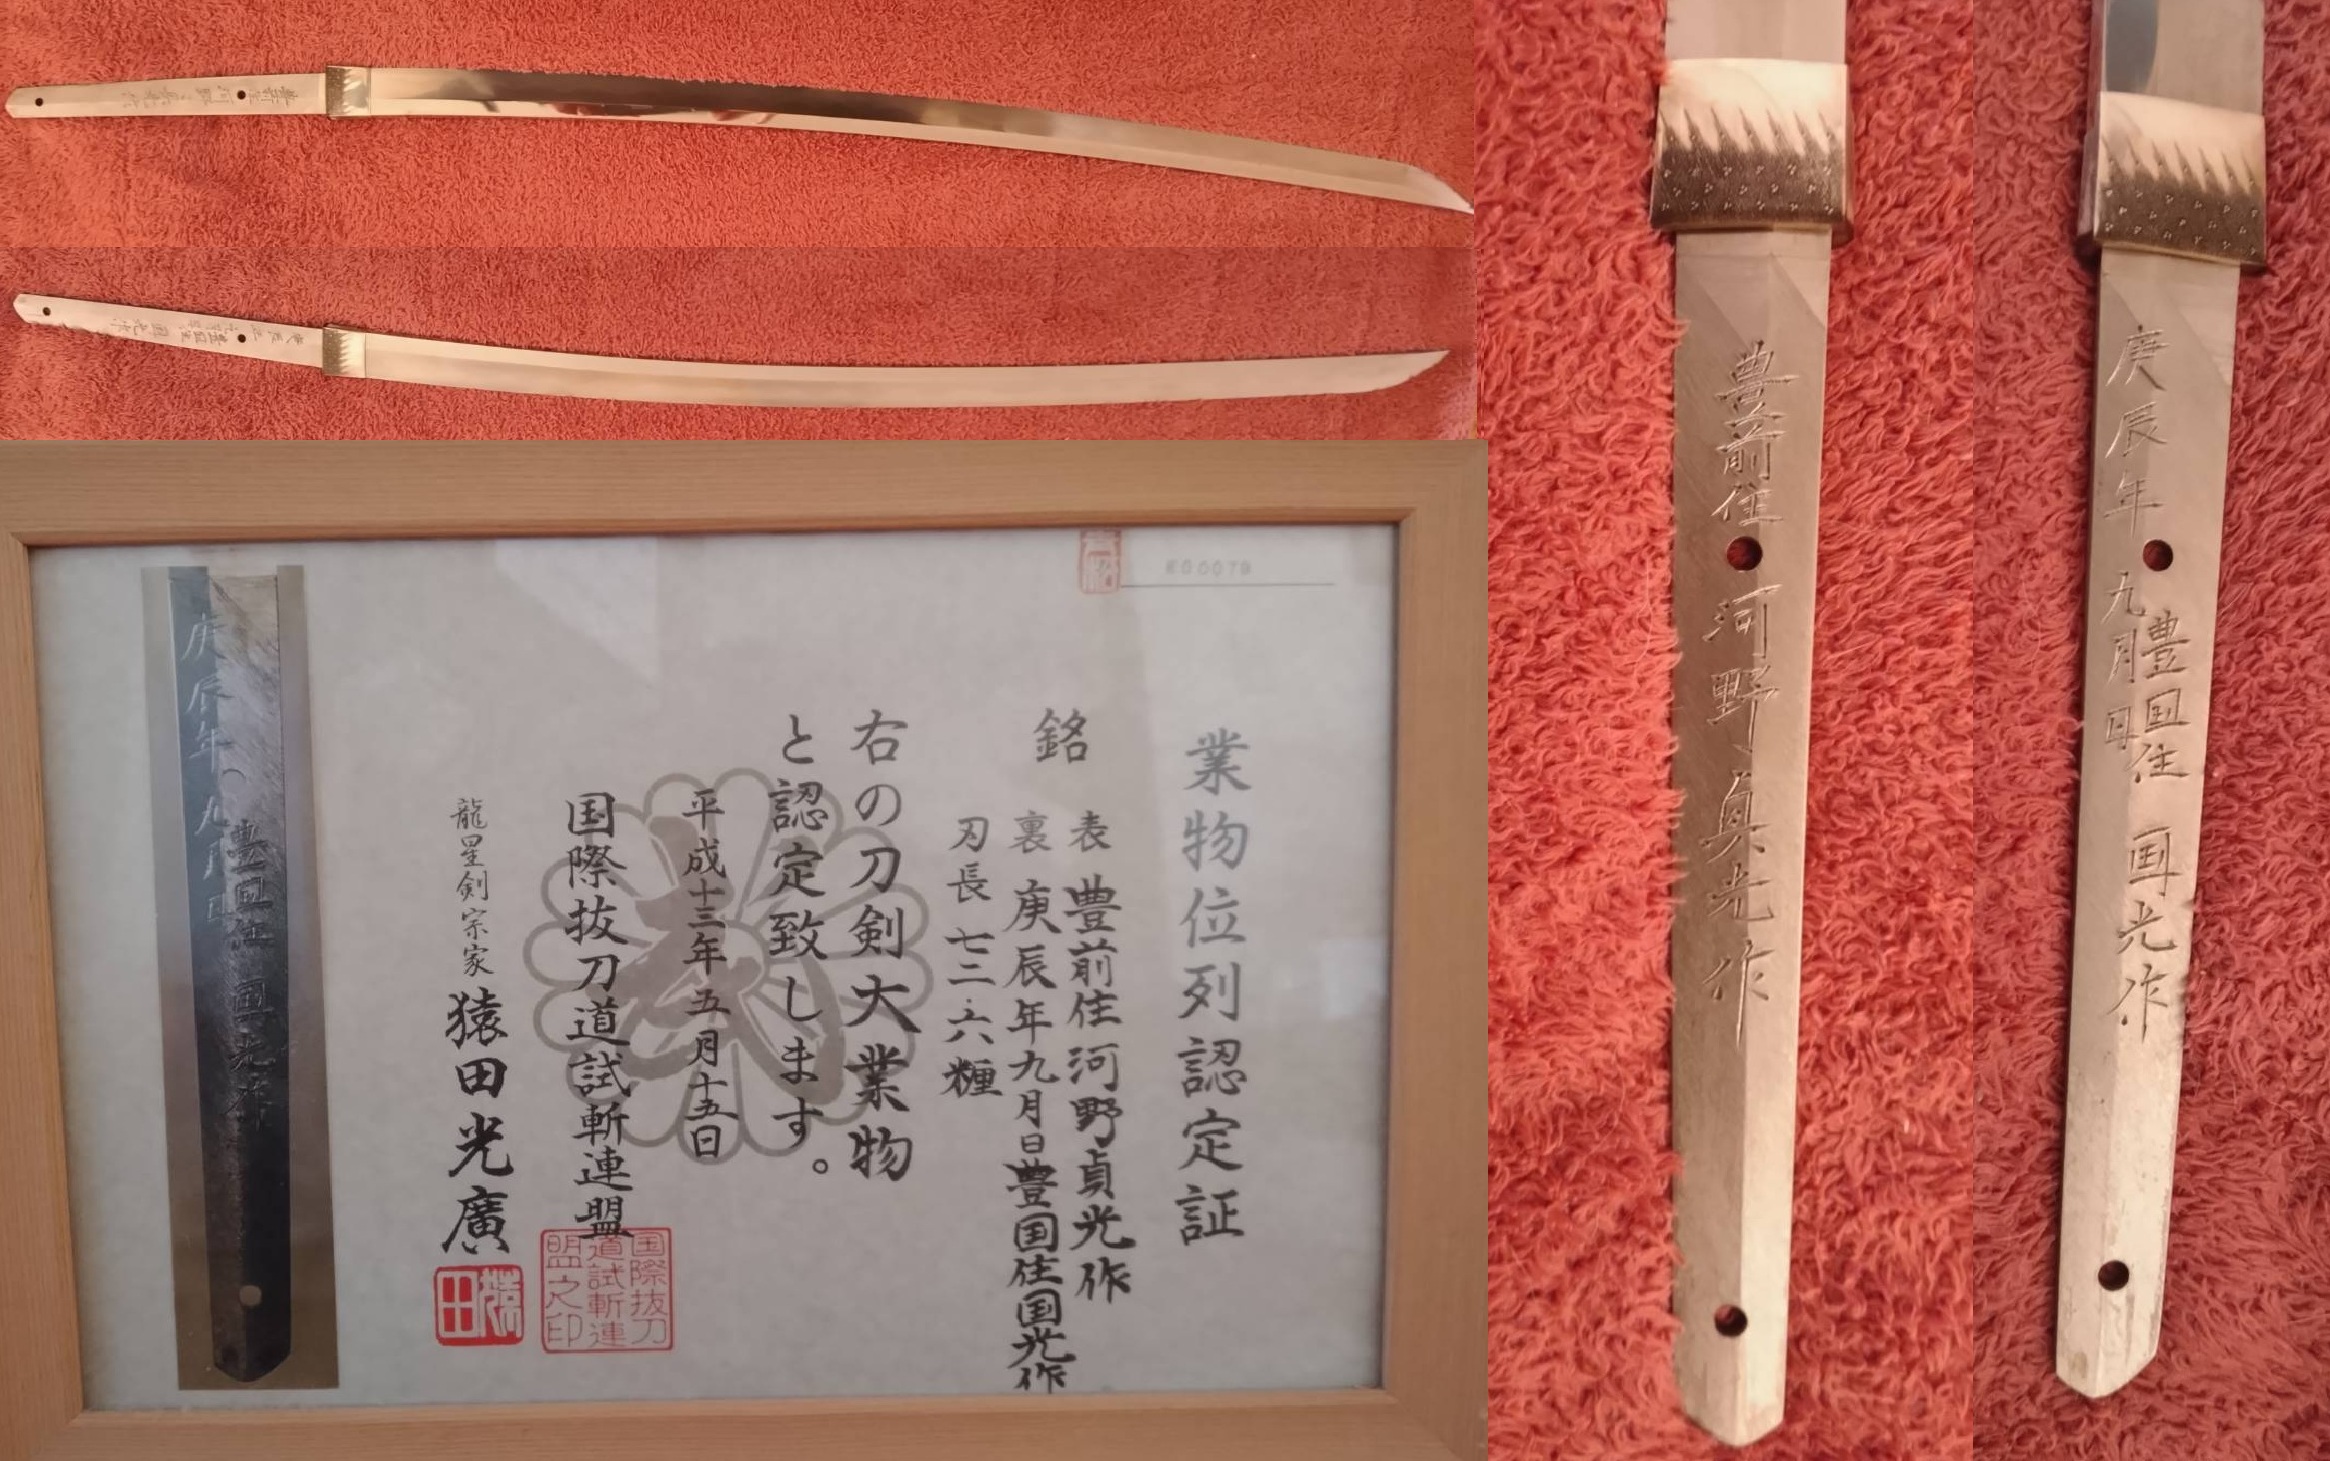 豊前住河野貞光作
庚辰年九月日
豊国住国光作
業物位列認定証
銘
表 豊前住河野貞光作
裏 庚辰年九月日豊国住国光作
刃長 七二.六糎
右の刀剣大業物
と認定致します。
平成十三年五月十五日
国際抜刀道試斬連盟
龍星剣宗家 猿田光廣
国際抜刀
道試斬連
盟之印
猿田
庚辰年九月日
豊国住国光作
豊前住河野貞光作
庚辰年九月日
豊国住国光作